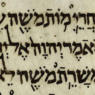 אַחֲרֵי מוֹת מֹשֶׁה
וַיֹּאמֶר יְהוָה אֶל
מְשָׁרֵת מֹשֶׁה